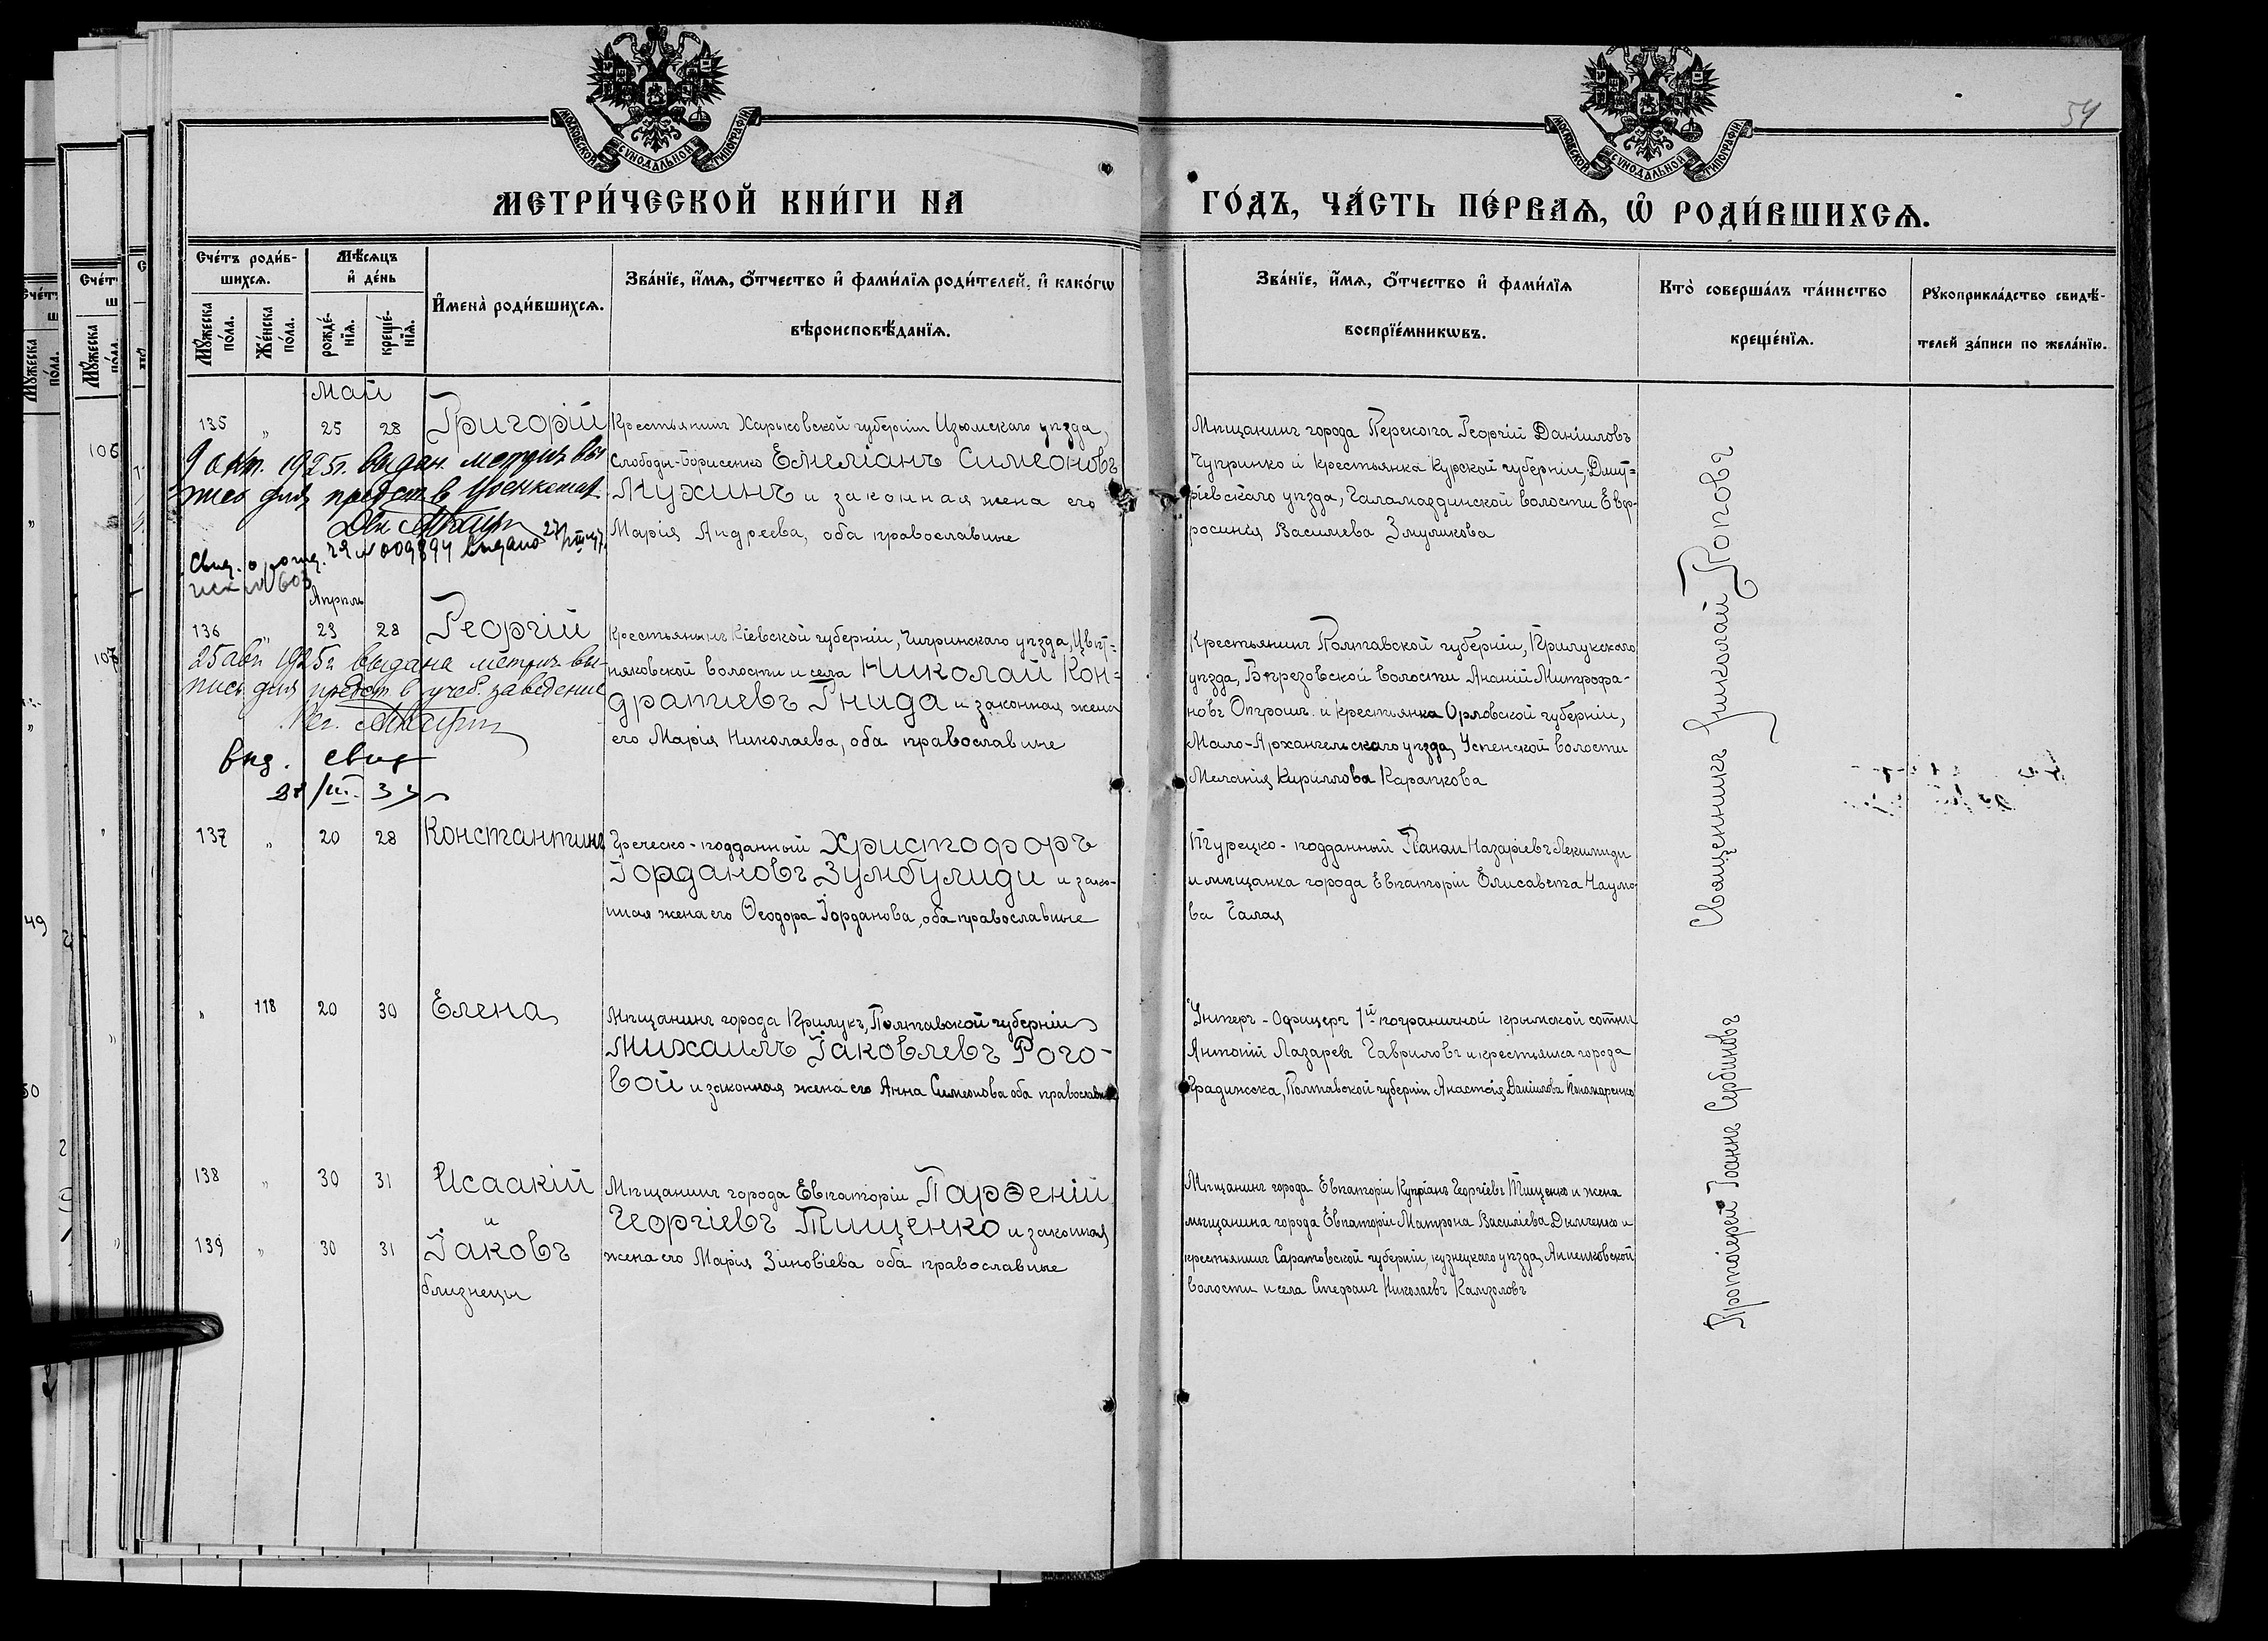 МОСКОВСКОЙ СѴНОДАЛЬНОЙ ТИПОГРАФІИ
МОСКОВСКОЙ СѴНОДАЛЬНОЙ ТИПОГРАФІИ
54
МЕТРИ́ЧЕСКОЙ КНИ́ГИ НА ГО́ДЪ, ЧА́СТЬ ПЕ́РВАѦ, Ѡ҆ РОДИ́ВШИХСѦ.
Сче́тъ роди́в-
шихсѧ.
Мѹ́жеска по́ла.
Же́нска по́ла.
Мѣ́сѧцъ
и҆ де́нь
рожде́-
нїѧ.
креще́-
нїѧ.
И҆мена̀ роди́вшихсѧ.
Зва́нїе, и҆́мѧ, ѻ҆́тчество и҆ фами́лїѧ роди́телей, и҆ како́гѡ
вѣроисповѣ́данїѧ.
Зва́нїе, и҆́мѧ, ѻ҆́тчество и҆ фами́лїѧ
воспрїе́мникѡвъ.
Кто̀ соверша́лъ та́инство
креще́нїѧ.
Рѹкоприкла́дство свидѣ́-
телей за́писи по жела́нїю.
Май
135 „ 25 28 Григорій
Крестьянинъ Харьковской губерніи Изюмскаго уѣзда,
Слободы-Борисенко Емеліанъ Симеоновъ
Мухинъ и законная жена его
Марія Андреева, оба православные
Мѣщанинъ города Перекопа Георгій Данииловъ
Чупринко и крестьянка Курской губерніи, Дмит=
ріевскаго уѣзда, Галамаздинской волости Евф-
росинія Васильева Змуликова
9 окт. 1925г. выдан. метрич. вы
пись для предст. в Военкомат
Свид. о рожд. № 009894 выдано
Апрѣль
136 „ 23 28 Георгій
Крестьянинъ Кіевской губерніи, Чигринскаго уѣзда, Цвѣт=
няковской волости и села Николай Кон=
дратіевъ Гнида и законная жена
его Марія Николаева, оба православные
Крестьянинъ Полтавской губерніи, Прилукскаго
уѣзда, Березовской волости Ананій Митрофа-
новъ Опрошъ и крестьянка Орловской губерніи,
Мало-Архангельскаго уѣзда, Успенской волости
Меланія Кириллова Карапкова
25 авг. 1925г. выдана метрич. вы-
пись для предст. в учеб. заведение
выд. свид
137 „ 20 28 Константинъ
Греческо-подданный Христофоръ
Іордановъ Зумбулиди и зако-
нная жена его Ѳеодора Іорданова, оба православные
Турецко-подданный Панаи Назаріевъ Лекишиди
и мѣщанка города Евпаторіи Елисавета Наумо
ва Галая
„ 118 20 30 Елена
Мѣщанинъ города Прилукъ, Полтавской губерніи
Михаилъ Іаковлевъ Рого-
вой и законная жена его Анна Симеонова оба православные
Унтеръ-Офицеръ 1й пограничной крымской сотни
Антоній Лазаревъ Гавриловъ и крестьянка города
Градижска, Полтавской губерніи Анастасія Даніилова Пономаренко
138 „ 30 31 Исаакій
и
139 „ 30 31 Іаковъ
близнецы
Мѣщанинъ города Евпаторіи Парѳеній
Георгіевъ Тищенко и законная
жена его Марія Зиновіева оба православные
Мѣщанинъ города Евпаторіи Купріанъ Георгіевъ Тищенко и жена
мѣщанина города Евпаторіи Матрона Василіева Дымченко и
крестьянинъ Саратовской губерніи, кузнецкаго уѣзда, Анненковской
волости и села Стефанъ Николаевъ Камзоловъ
Священникъ Николай Поповъ
Протоіерей Іоаннъ Сербиновъ